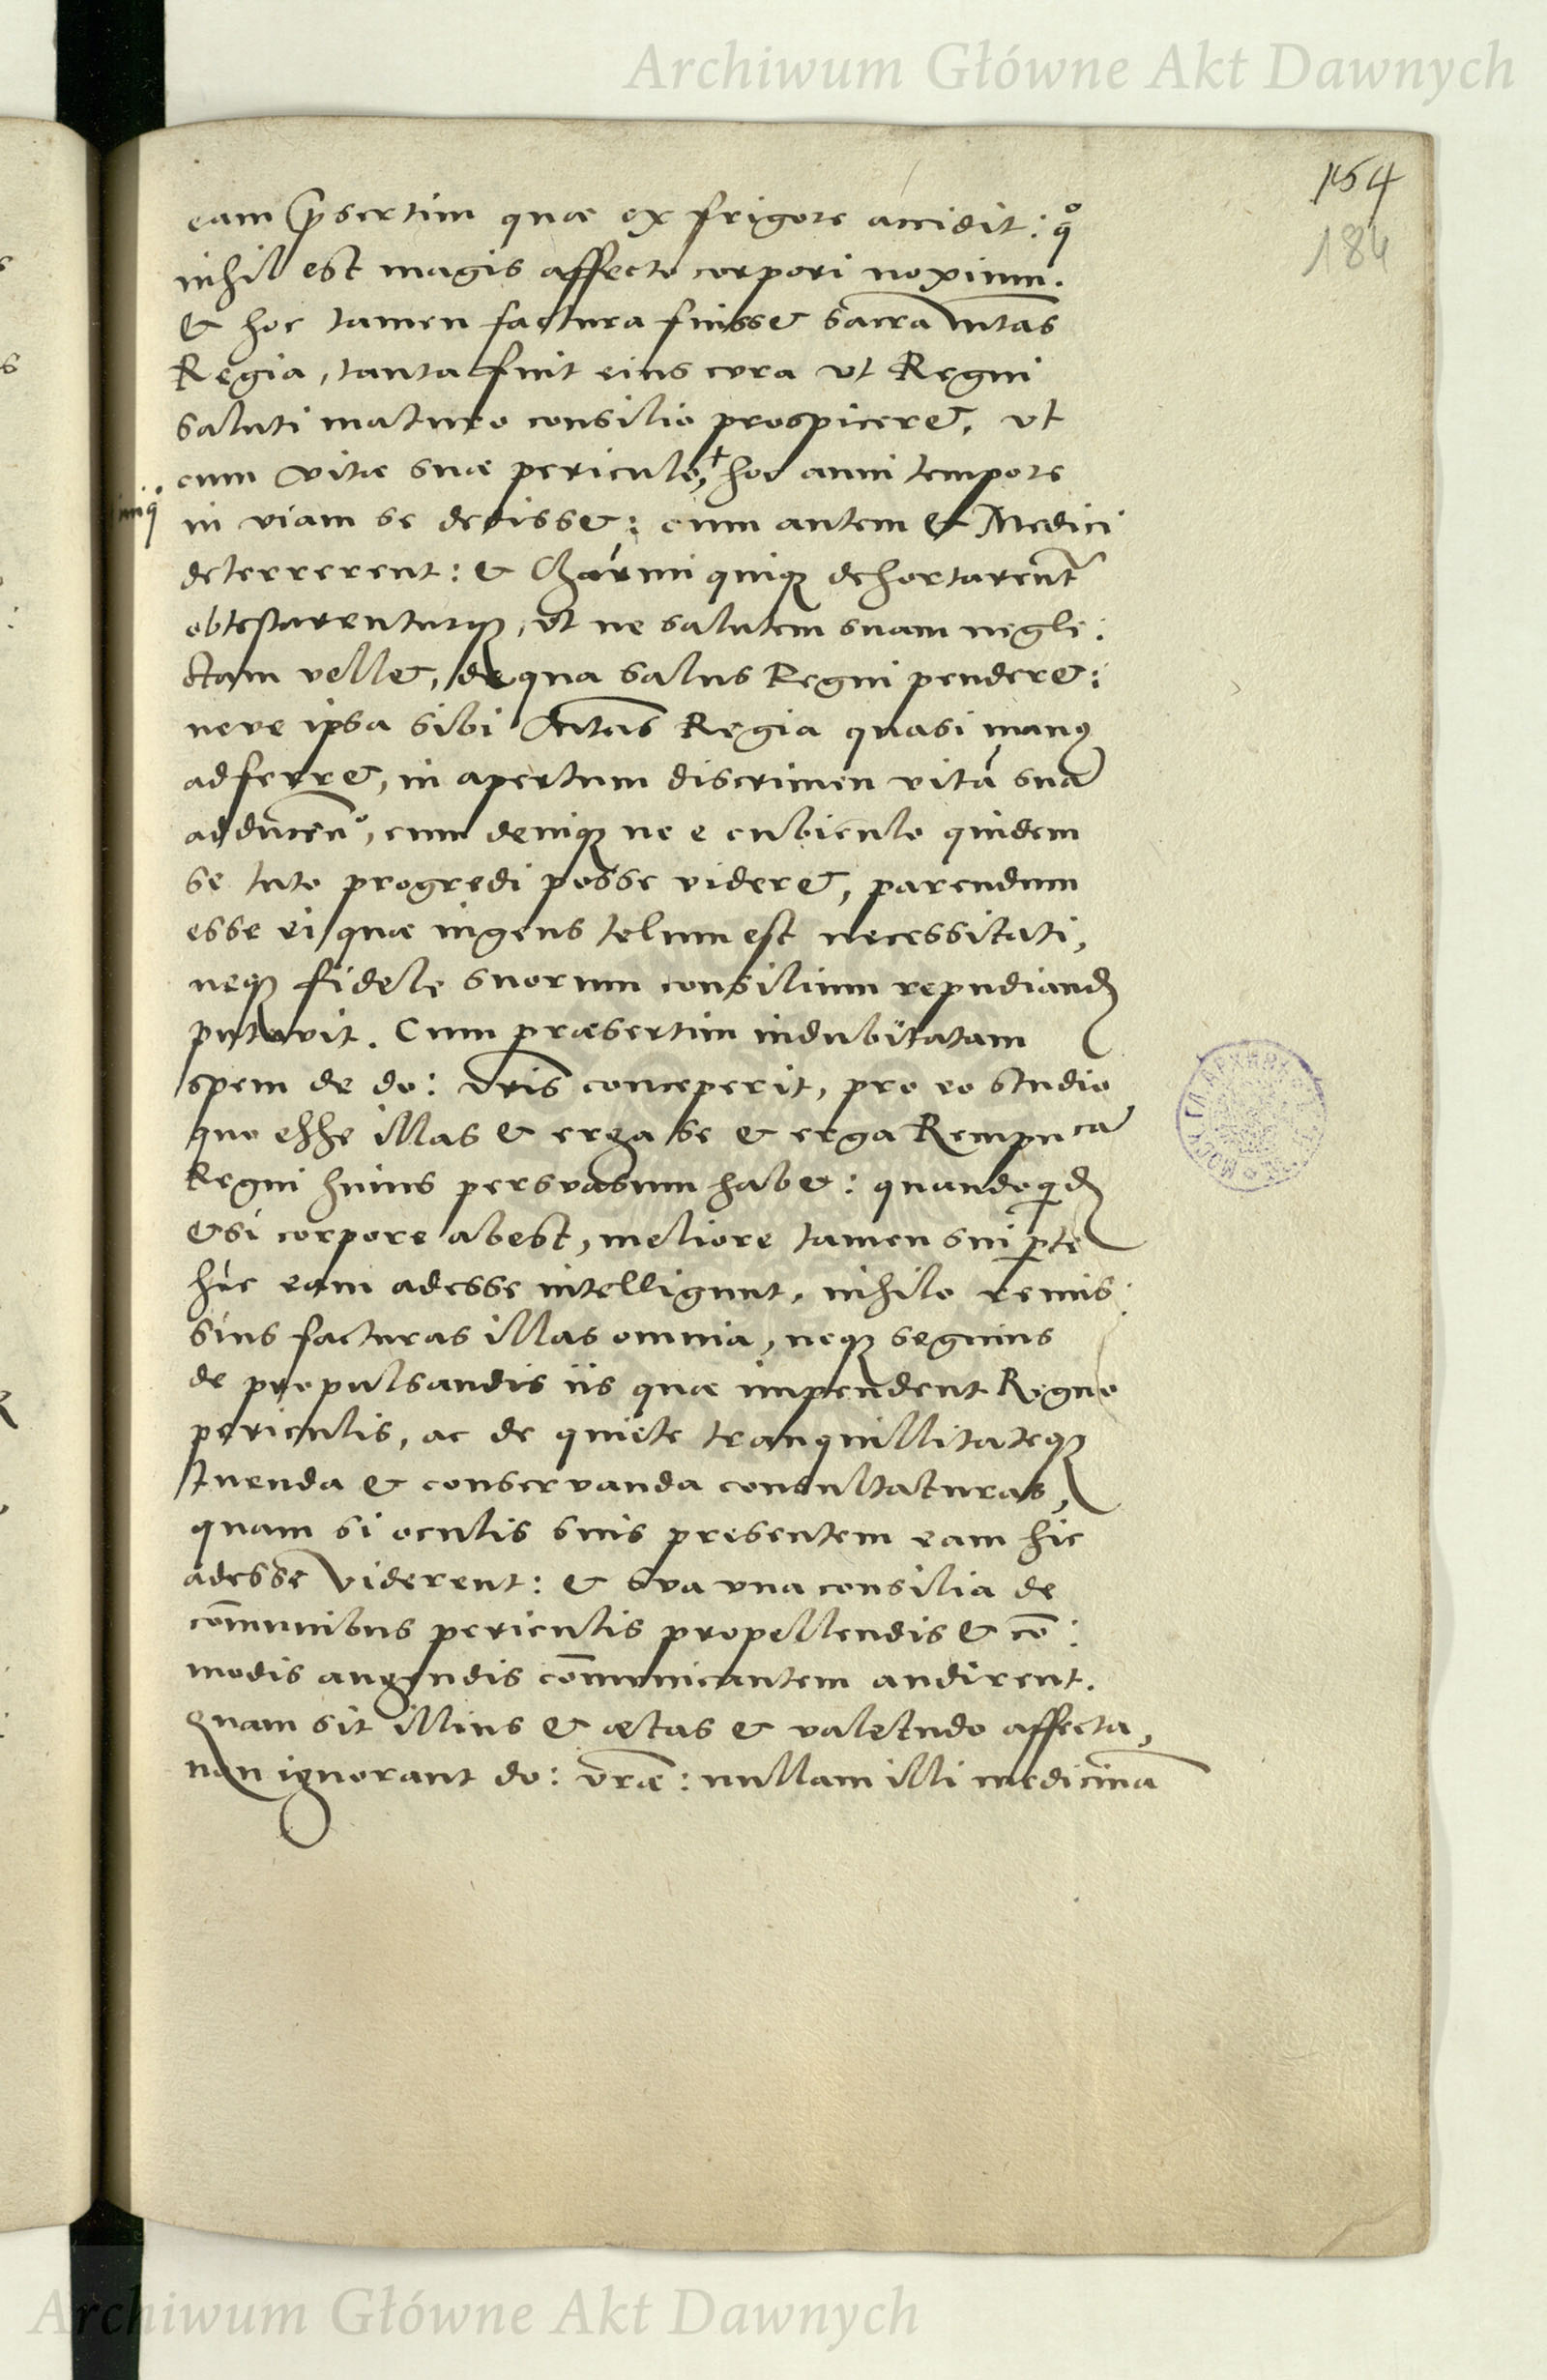 Archiwum Główne Akt Dawnych
154
184
eam p̄sertim quæ ex frigore accidit: qº
nihil est magis affecto corpori noxium.
& hoc tamen factura fuisset sacra Mtas
Regia, tanta fuit eius cura ut Regni
saluti maturo consilio prospiceret, ut
cum vitæ suæ periculo,+ hoc anni tempore
iniqº
in viam se dedisset: cum autem & Medici
deterrerent: & Charmi quiqȝ dehortarent
obtestarenturqȝ, ut ne salutem suam negle:
ctam vellet, de qua salus Regni penderet:
neve ipsa sibi Mtas Regia quasi manꝰ
adferret, in apertum discrimen vitā suā
adducenº, cum deniqȝ ne e cubiculo quidem
se tuto progredi posse videret, parendum
esse ei quæ ingens telum est necessitati,
neqȝ fidele suorum consilium repudiand
putavit. Cum præsertim indubitatam
spem de do: vris conceperit, pro eo studio
quo esse illas & erga se & erga Rempucā
Regni huius persvasum habet: quandoqid
etsi corpore abest, meliore tamen sui pte
hic eam adesse intelligunt, nihilo remis:
sius facturas illas omnia, neqȝ segnius
de propulsandis iis quæ impendent Regno
periculis, ac de quiete tranquillitateqȝ
tuenda & conservanda consultaturas,
quam si oculis suis presentem eam hic
adesse viderent: & sva una consilia de
com̄unibus periculis propellendis & cō:
modis augendis com̄unicantem audirent.
Quam sit illius & ætas & valetudo affecta,
non ignorant do: vræ: nullam illi medicinā
Archiwum Główne Akt Dawnych